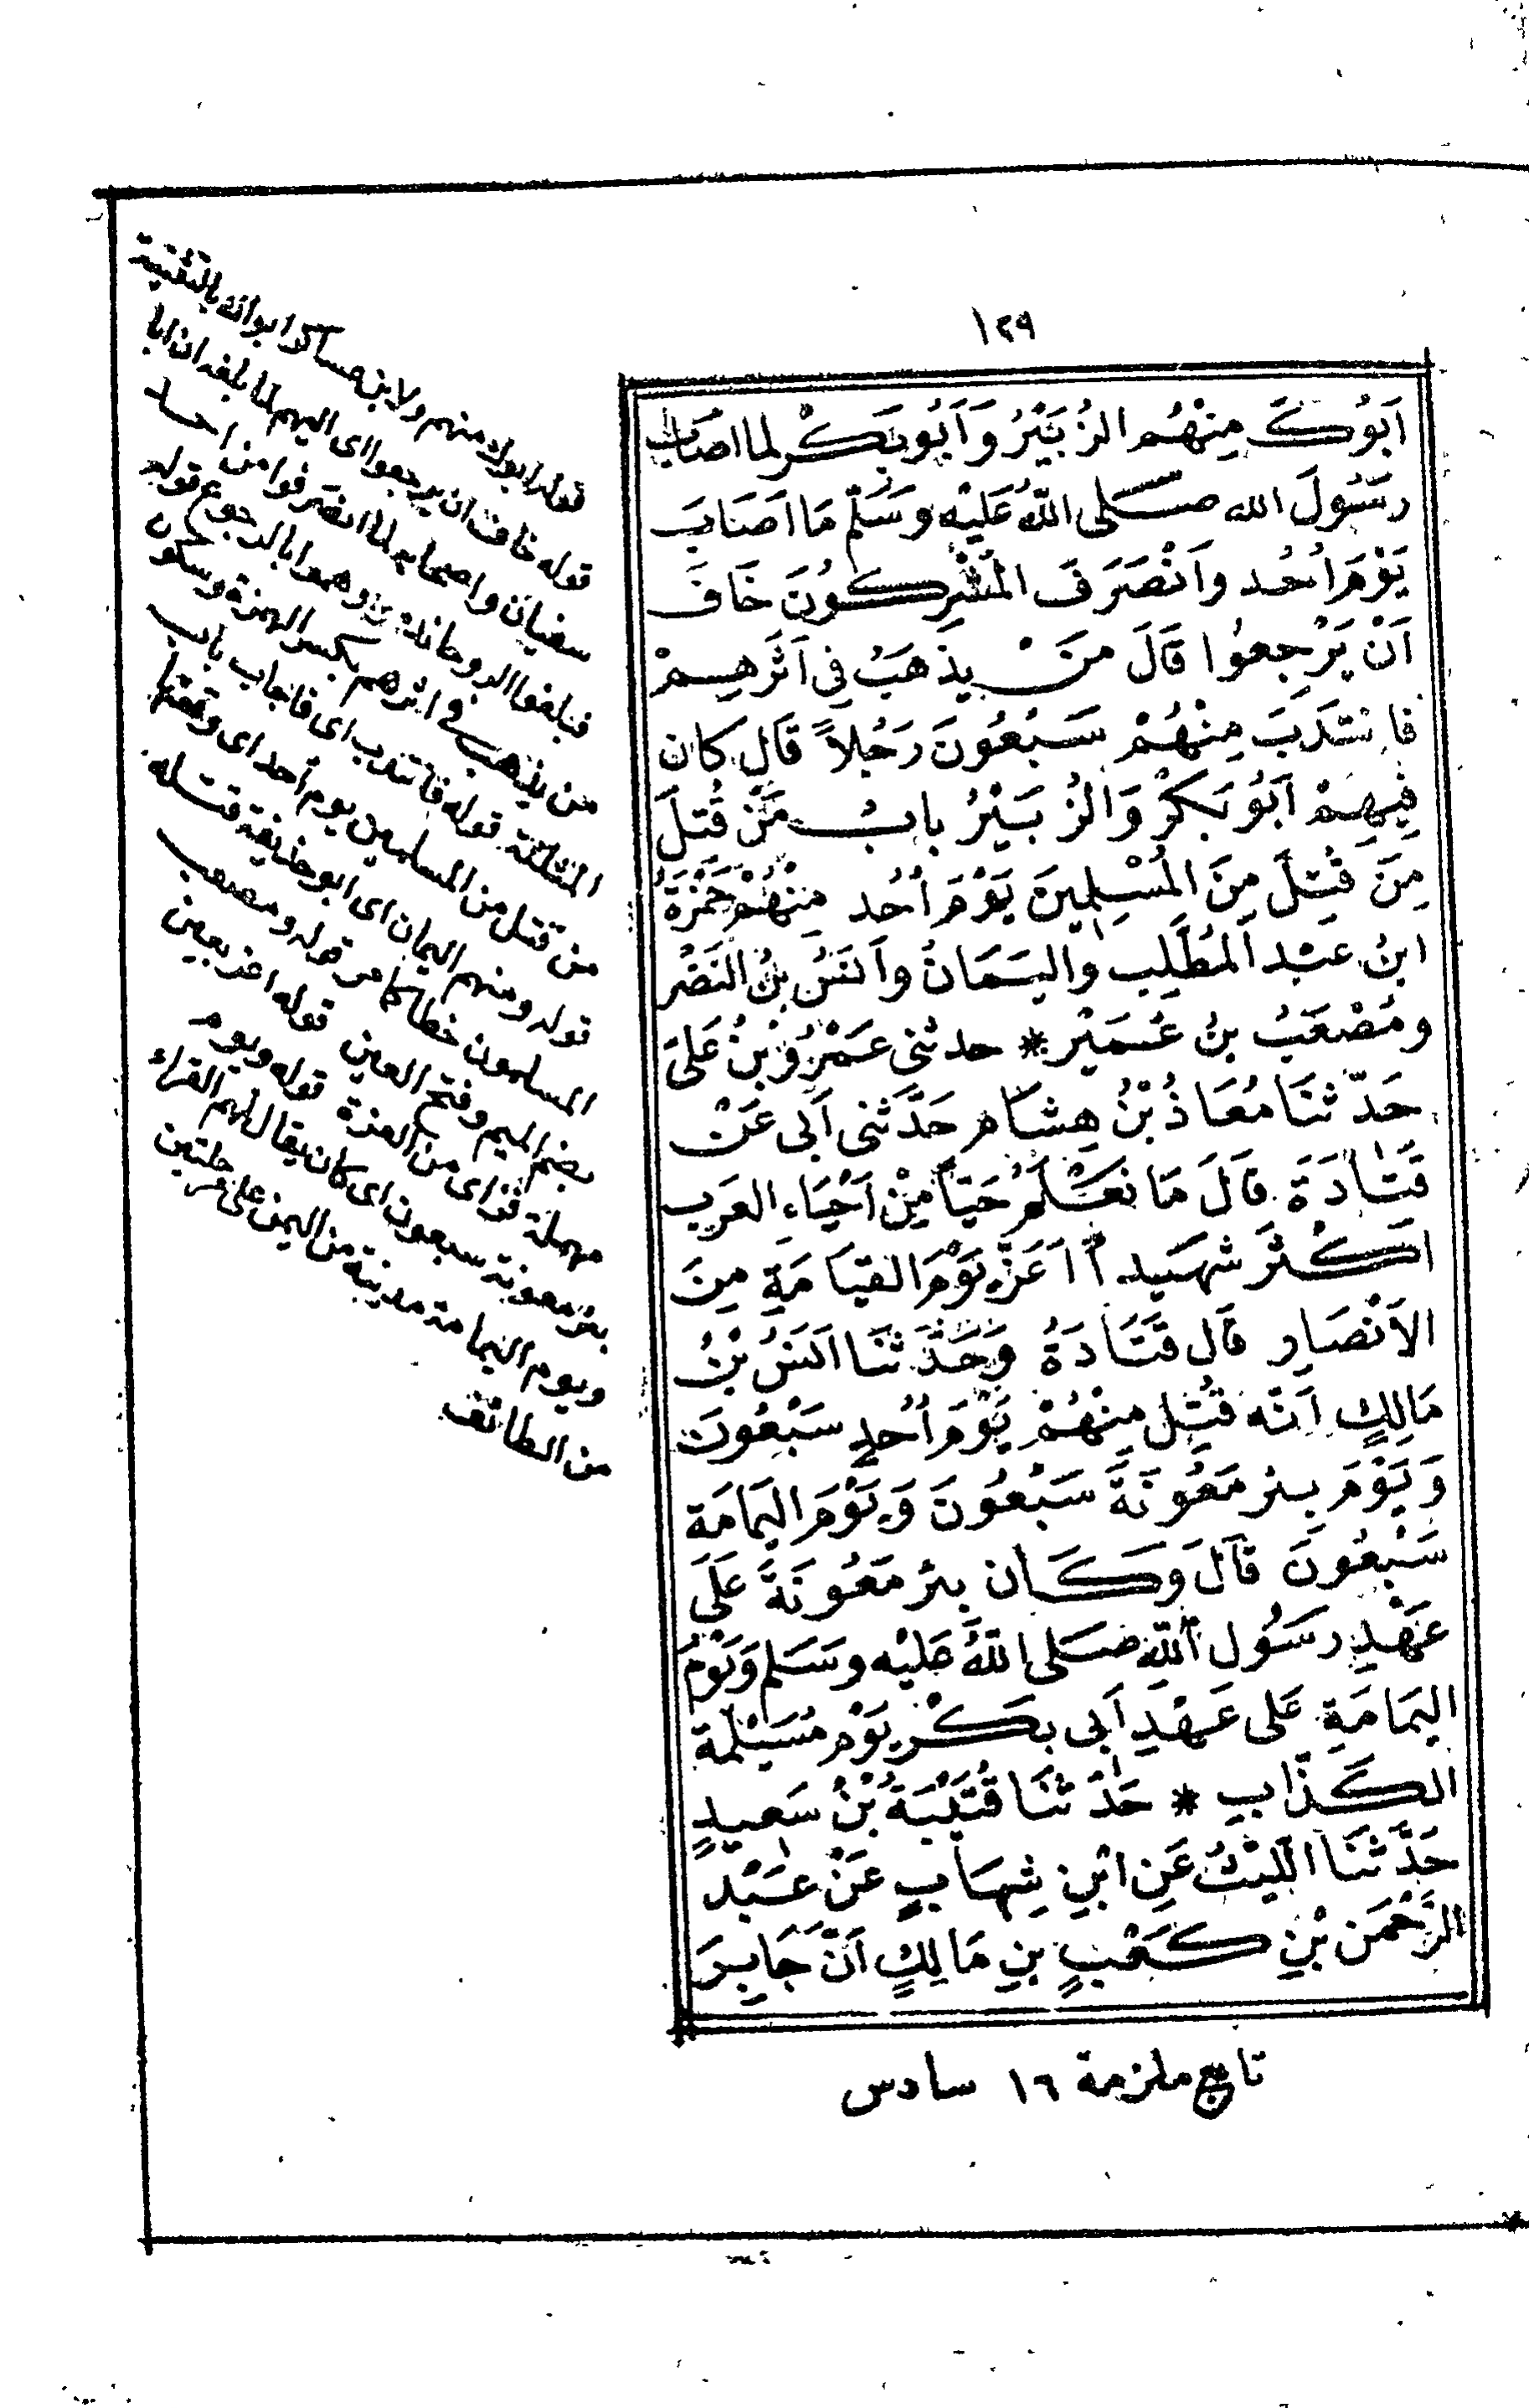 ١٢٩
اَبُوكَ مِنْهُم الزُبَيْرُ وَاَبُو بَكْر لما اصَابَ
رسَُولَ الله صَلى اللّٰهُ عَلَيْهِ وسَلّم مَا اَصَابَ
يَوْمَ اُحُد وانْصَرَفَ المُشْرِكُونَ خَافَ
اَنْ يَرْجِعوُا قَالَ مَنْ يذْهَبُ فِي اَثَرِهِمْ
فانتَدَبَ مِنْهُمْ سَبْعُونَ رَجُلاً قَال كان
فِيهِمْ اَبُو بَكرْ وَالزُ بَيْرُ بابُ مَنْ قُتلَ
مِنَ قُتِلَ مِنَ المُسْلِمينَ يَوْمَ اُحُد مِنْهُمْ حَمْزَةُ
ابنُ عبْد اَلمُطَّلِبِ واليَمَانُ وأنَسُ بنُ النَضْر
ومُصْعَبُ بنُ عُمَيْر * حدثنى عَمْرُو بْنُ عَلىَ
حَدّثنَا مُعَاذُ بْنُ هِشَامٍ حَدَّثنى اَبى عَنْ
قَتَادَةَ قَالَ مَا نعَْلَمُ حَيّاً مِنْ اَحْيَاءِ العَرَبِ
اكْثَرَ شَهَيداً اَعَزَّ يَوْمَ القيَامَةِ مِنَ
الاَنْصَارِ قَال قَتَادَةُ وَحَدَّثنَا اَنَسُ بْنُ
مَالِكٍ اَنّه قُتِل مِنْهُمْ يَوْمَ اُحُدٍ سَبْعُونَ
وَيَوْمَ بِئر مَعُونَةَ سَبْعُونَ وَيَوْمَ اليمَامَة
سَبْعُونَ قَالَ وَكَان بئر مَعُونَةَ عَلَى
عَهْدِ رسَُول اللّٰهِ صَلى اللّٰهُ عَليْه وسَلم وَيَوْمُ
اليمَامَةِ عَلى عَهْدِ اَبى بكْر يَوْم مُسَيْلمة
الكَذّابِ * حَدّثنَا قُتَيْبَةُ بْنُ سَعيدٍ
حَدَّثَنَا اللّيْثُ عَنِ ابْنِ شِهَابٍ عَنْ عَبْد
الرَّحْمَن بْنِ كَعْبٍ بنِ مَالِكٍ اَنّ جَابِرَ
قوله ابواد منهم ولابن عساكر ابواه بالتثنية
قوله خاف ان يرجعوا اى اليهم لما بلغه ان ابا
سفيان واصحابه لما انصرفوا من احد
فبلغوا الروحاء وهموا بالرجوع قوله
من يذهب فى اثرهم بكسر الهمزة وسكون
المثلثة قوله فانتدب اى فاجاب باب
من قتل من المسلمين يوم أحد اى وقعتها
قوله ومنهم اليمان اى ابو حذيفة قتله
المسلمون خطا كما مر قوله ومصعب
بضم الميم وفتح العين قوله اعز بعين
مهملة فزاى من العزة قوله ويوم
بئر معونة سبعون اى كان يقال لهم القراء
ويوم اليمامة مدينة من اليمن على مرحلتين
من الطائف
تابع ملزمة ١٦ سادس